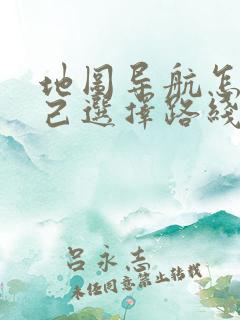 地圖导航怎
己選擇路綫
吕永志
未经同意禁止转载